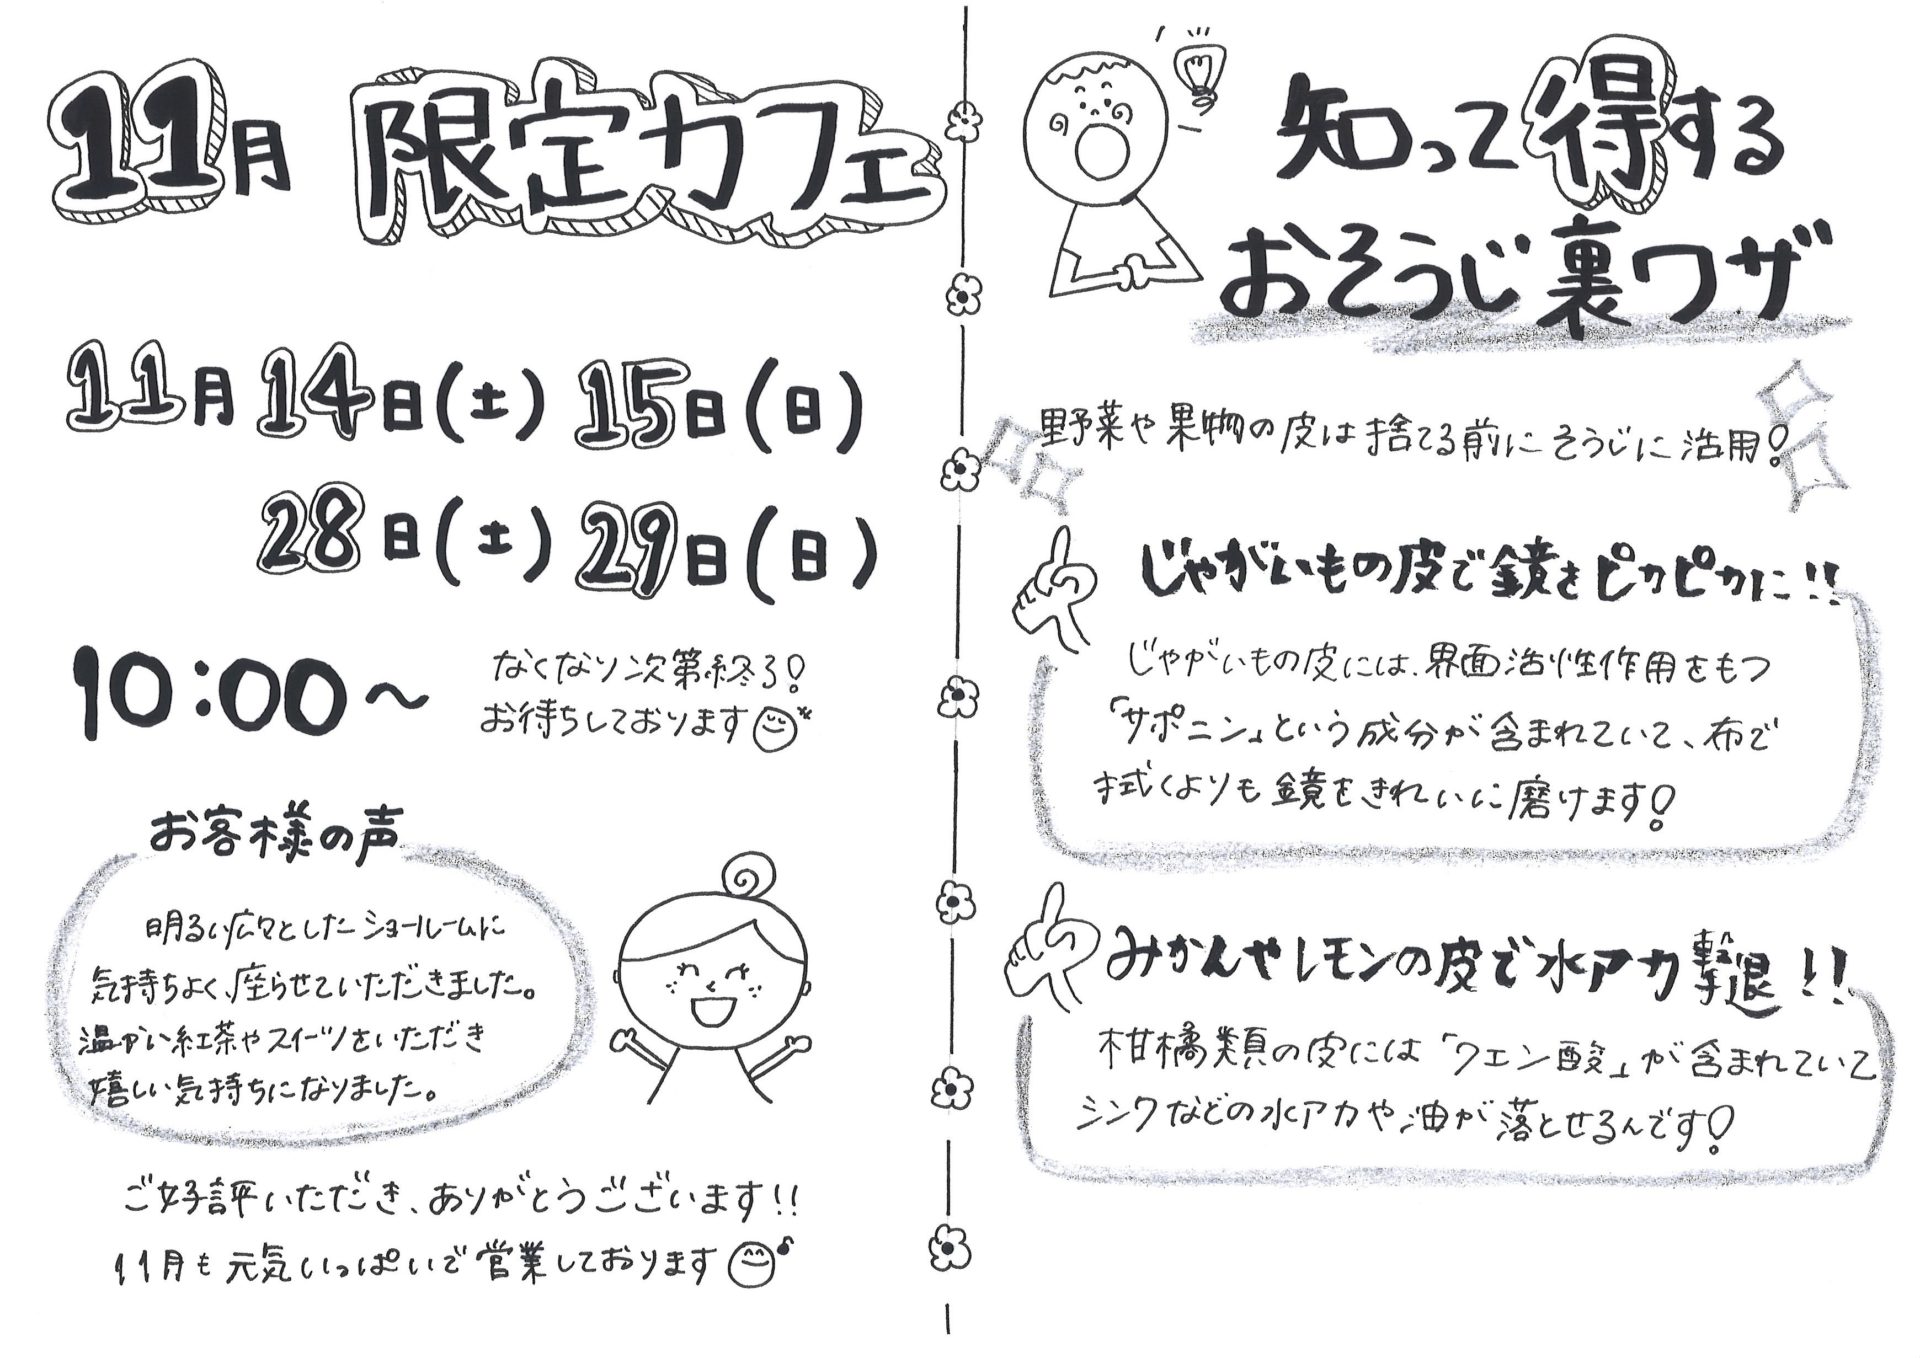 11月 限定カフェ
11月 14日(土) 15日(日)
28日(土) 29日(日)
10:00〜
なくなり次第終了!
お待ちしております
お客様の声
明るい広々としたショールームに
気持ちよく、座らせていただきました。
温かい紅茶やスイーツをいただき
嬉しい気持ちになりました。
ご好評いただき、ありがとうございます!!
11月も元気いっぱいで営業しております
知って得する
おそうじ裏ワザ
野菜や果物の皮は捨てる前にそうじに活用!
じゃがいもの皮で鏡をピカピカに!!
じゃがいもの皮には、界面活性作用をもつ
「サポニン」という成分が含まれていて、布で
拭くよりも鏡をきれいに磨けます!
みかんやレモンの皮で水アカ撃退!!
柑橘類の皮には「クエン酸」が含まれていて
シンクなどの水アカや油が落とせるんです!